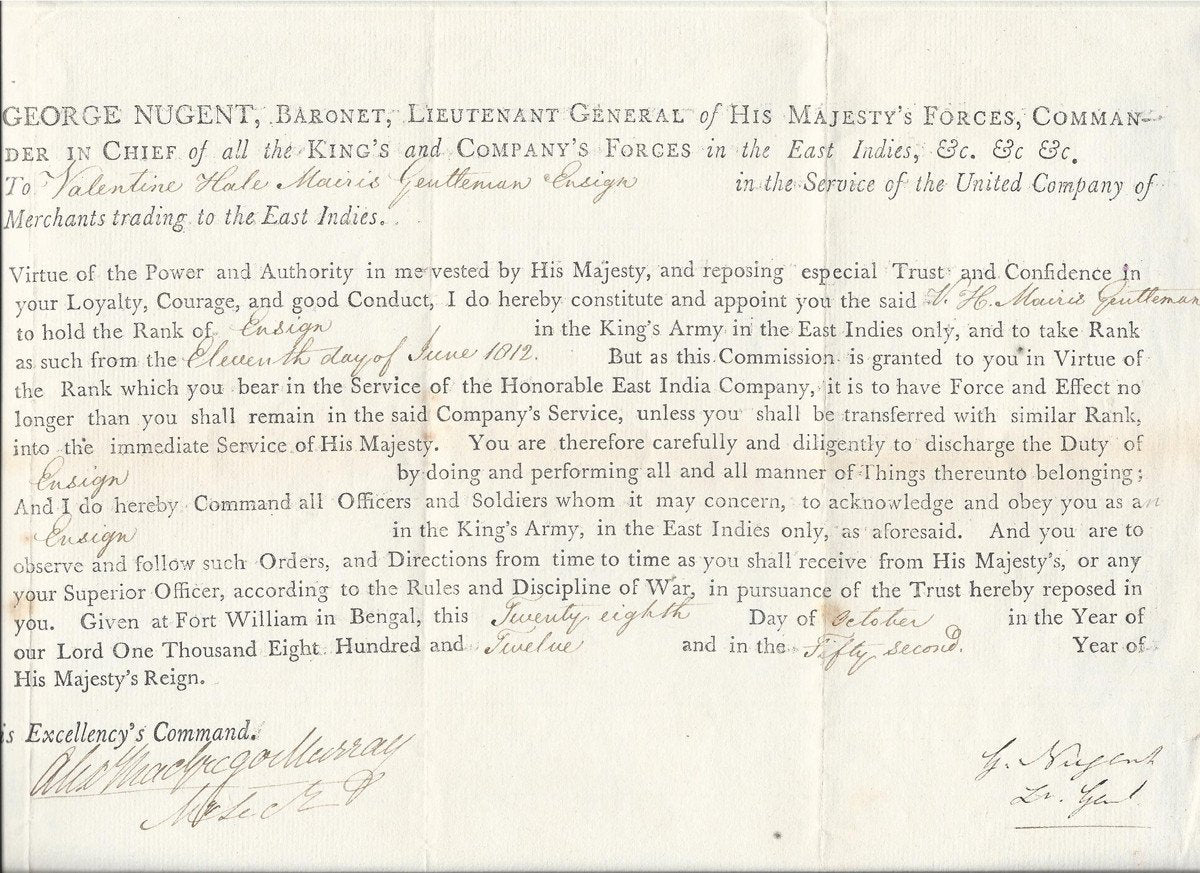 GEORGE NUGENT, BARONET, LIEUTENANT GENERAL of HIS MAJESTY'S FORCES, COMMAN-
DER IN CHIEF of all the KING'S and COMPANY'S FORCES in the East Indies, &c. &c &c.
To Valentine Hale Mairis Gentleman Ensign in the Service of the United Company of
Merchants trading to the East Indies.
Virtue of the Power and Authority in me vested by His Majesty, and reposing especial Trust and Confidence in
your Loyalty, Courage, and good Conduct, I do hereby constitute and appoint you the said V. H. Mairis Gentleman
to hold the Rank of Ensign in the King's Army in the East Indies only, and to take Rank
as such from the Eleventh day of June 1812. But as this Commission is granted to you in Virtue of
the Rank which you bear in the Service of the Honorable East India Company, it is to have Force and Effect no
longer than you shall remain in the said Company's Service, unless you shall be transferred with similar Rank,
into the immediate Service of His Majesty. You are therefore carefully and diligently to discharge the Duty of
Ensign by doing and performing all and all manner of Things thereunto belonging;
And I do hereby Command all Officers and Soldiers whom it may concern, to acknowledge and obey you as an
Ensign in the King's Army, in the East Indies only, as aforesaid. And you are to
observe and follow such Orders, and Directions from time to time as you shall receive from His Majesty's, or any
your Superior Officer, according to the Rules and Discipline of War, in pursuance of the Trust hereby reposed in
you. Given at Fort William in Bengal, this Twenty eighth Day of October in the Year of
our Lord One Thousand Eight Hundred and Twelve and in the Fifty second. Year of
His Majesty's Reign.
is Excellency's Command.
MacGregor Murray
G. Nugent
Lt. Genl.